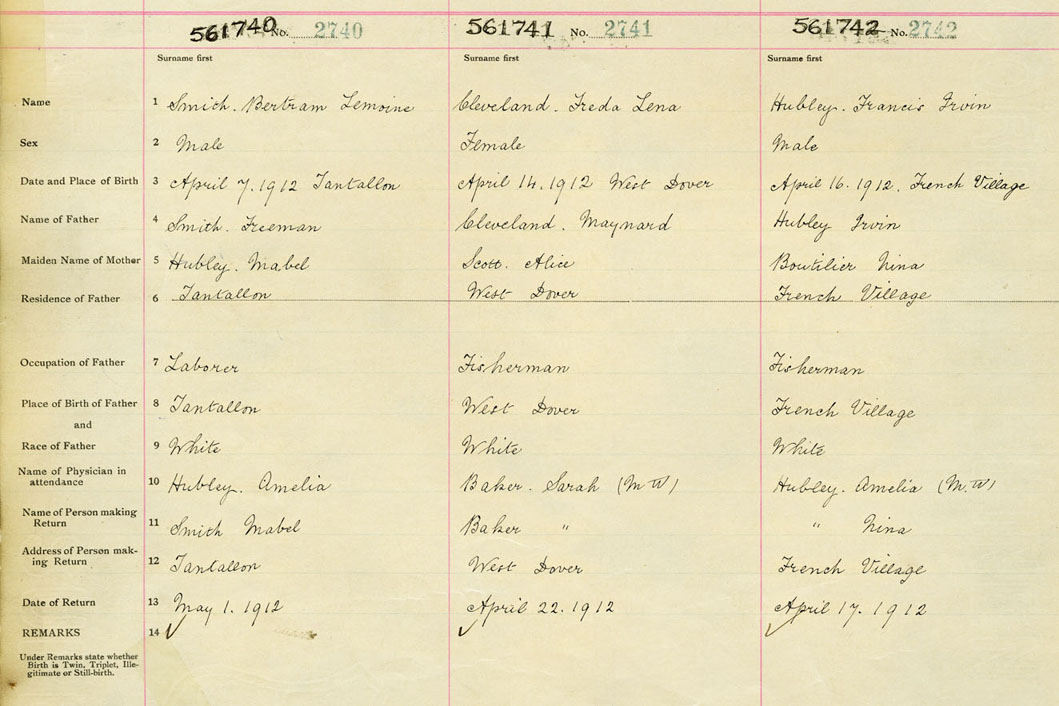 561740 No. 2740 561741 No. 2741 561742 No. 2742
Surname first Surname first Surname first
Name 1 Smith. Bertram Lemoine Cleveland. Freda Lena Hubley. Francis Irvin
Sex 2 Male Female Male
Date and Place of Birth 3 April 7. 1912 Tantallon April 14. 1912 West Dover April 16. 1912. French Village
Name of Father 4 Smith. Freeman Cleveland. Maynard Hubley Irvin
Maiden Name of Mother 5 Hubley. Mabel Scott. Alice Boutilier Nina
Residence of Father 6 Tantallon West Dover French Village
Occupation of Father 7 Laborer Fisherman Fisherman
Place of Birth of Father 8 Tantallon West Dover French Village
and
Race of Father 9 White White White
Name of Physician in
attendance 10 Hubley. Amelia Baker. Sarah (M.W) Hubley. Amelia (M.W)
Name of Person making
Return 11 Smith Mabel Baker " " Nina
Address of Person mak-
ing Return 12 Tantallon West Dover French Village
Date of Return 13 May 1. 1912 April 22. 1912 April 17. 1912
REMARKS 14 ✓ ✓ ✓
Under Remarks state whether
Birth is Twin, Triplet, Ille-
gitimate or Still-birth.